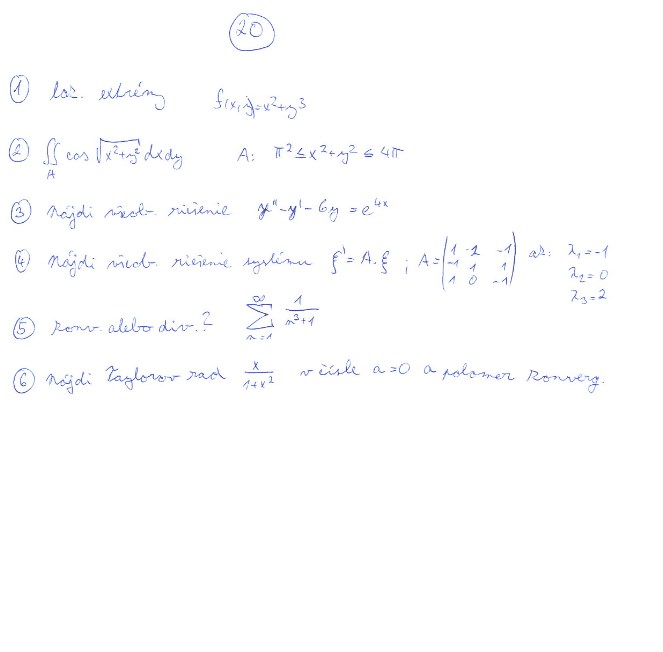 20
① loc. extrémy f(x,y)=x²+y³
② ∬_A cos √(x²+y²) dxdy A: π² ≤ x²+y² ≤ 4π
③ Nájdi všeob. riešenie y''-y'-6y = e^(4x)
④ Nájdi všeob. riešenie systému ξ' = A.ξ ; A = (1 -2 -1; -1 1 1; 1 0 -1) λ₁=-1 λ₂=0 λ₃=2
⑤ Konv. alebo div.? ∑_(n=1)^∞ 1/(n³+1)
⑥ Nájdi Taylorov rad x/(1+x²) v čísle a=0 a polomer konverg.